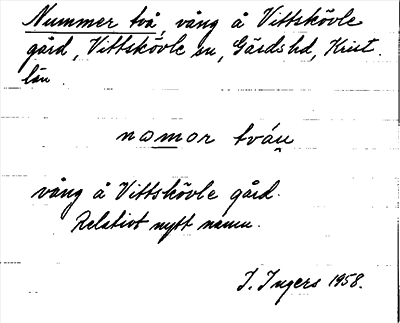 Nummer två, vång å Vittskövle
gård, Vittskövle sn, Gärds hd, Krist.
län.
nomor tváu̯
vång å Vittskövle gård.
Relativt nytt namn.
I. Ingers 1958.